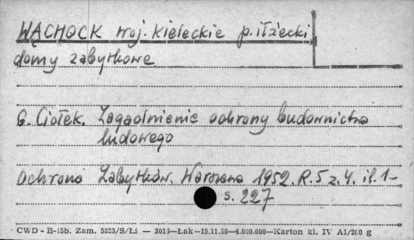 WĄCHOCK woj. kieleckie p. iłżecki
domy zabytkowe
G. Ciołek. Zagadnienie ochrony budownictwa
ludowego
Ochrona Zabytków. Warszawa 1952. R. 5 z. 4. il. 1-
s. 227
CWD - B-15b. Zam. 5323/S/Łż — 3013—Łak—15.11.50—4.000.000—Karton kl. IV A1/200 g